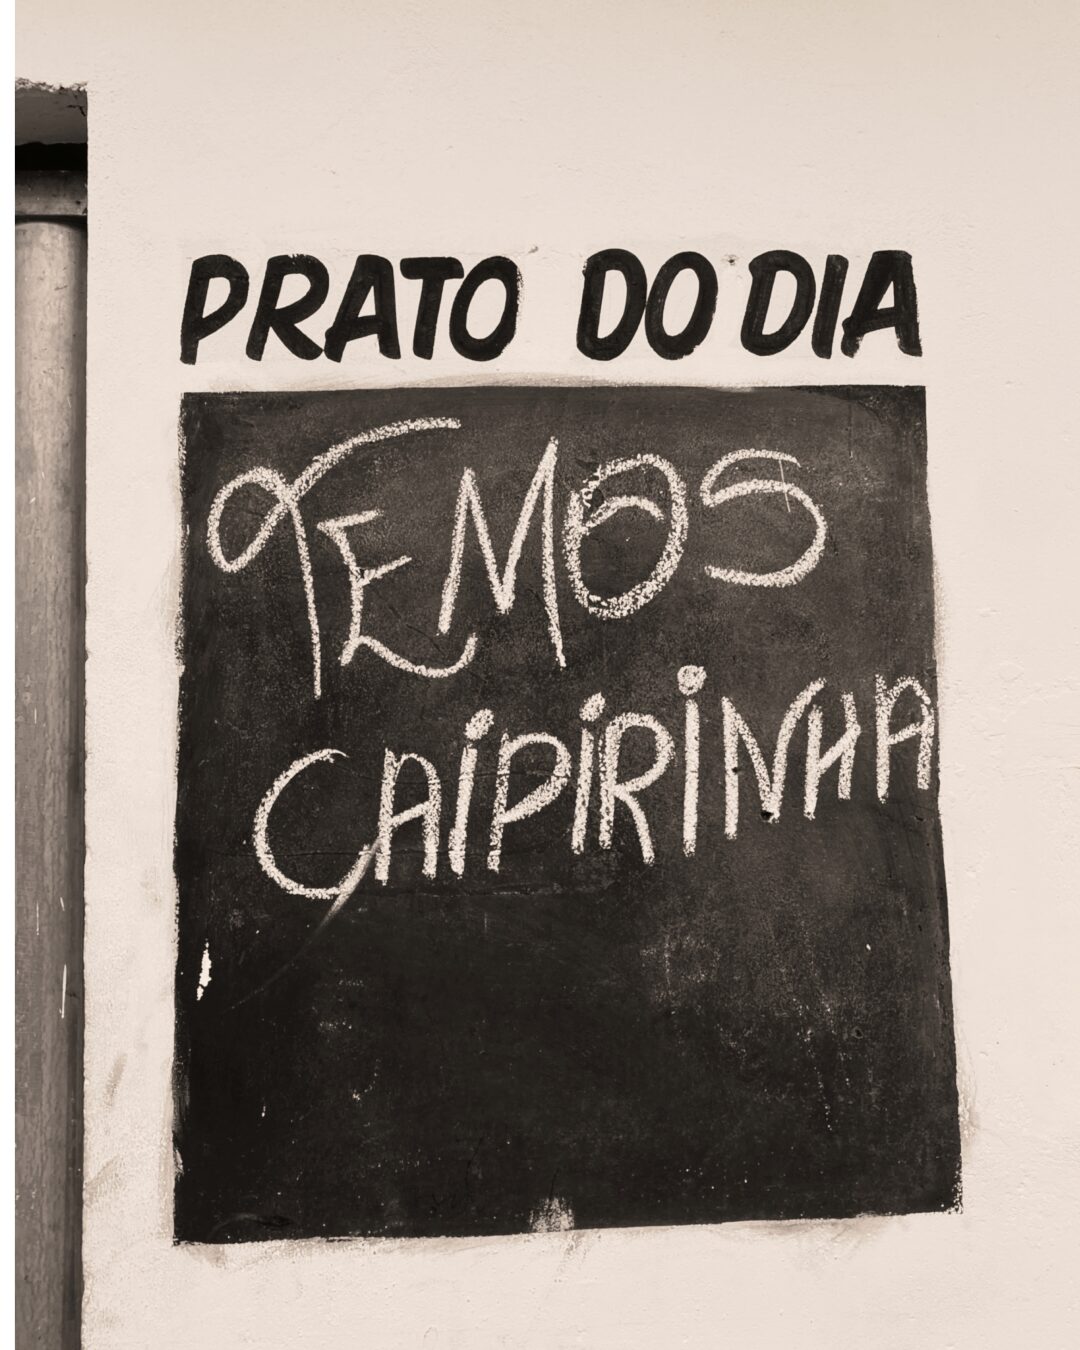 PRATO DO DIA
TEMOS
CAiPiRiNHA